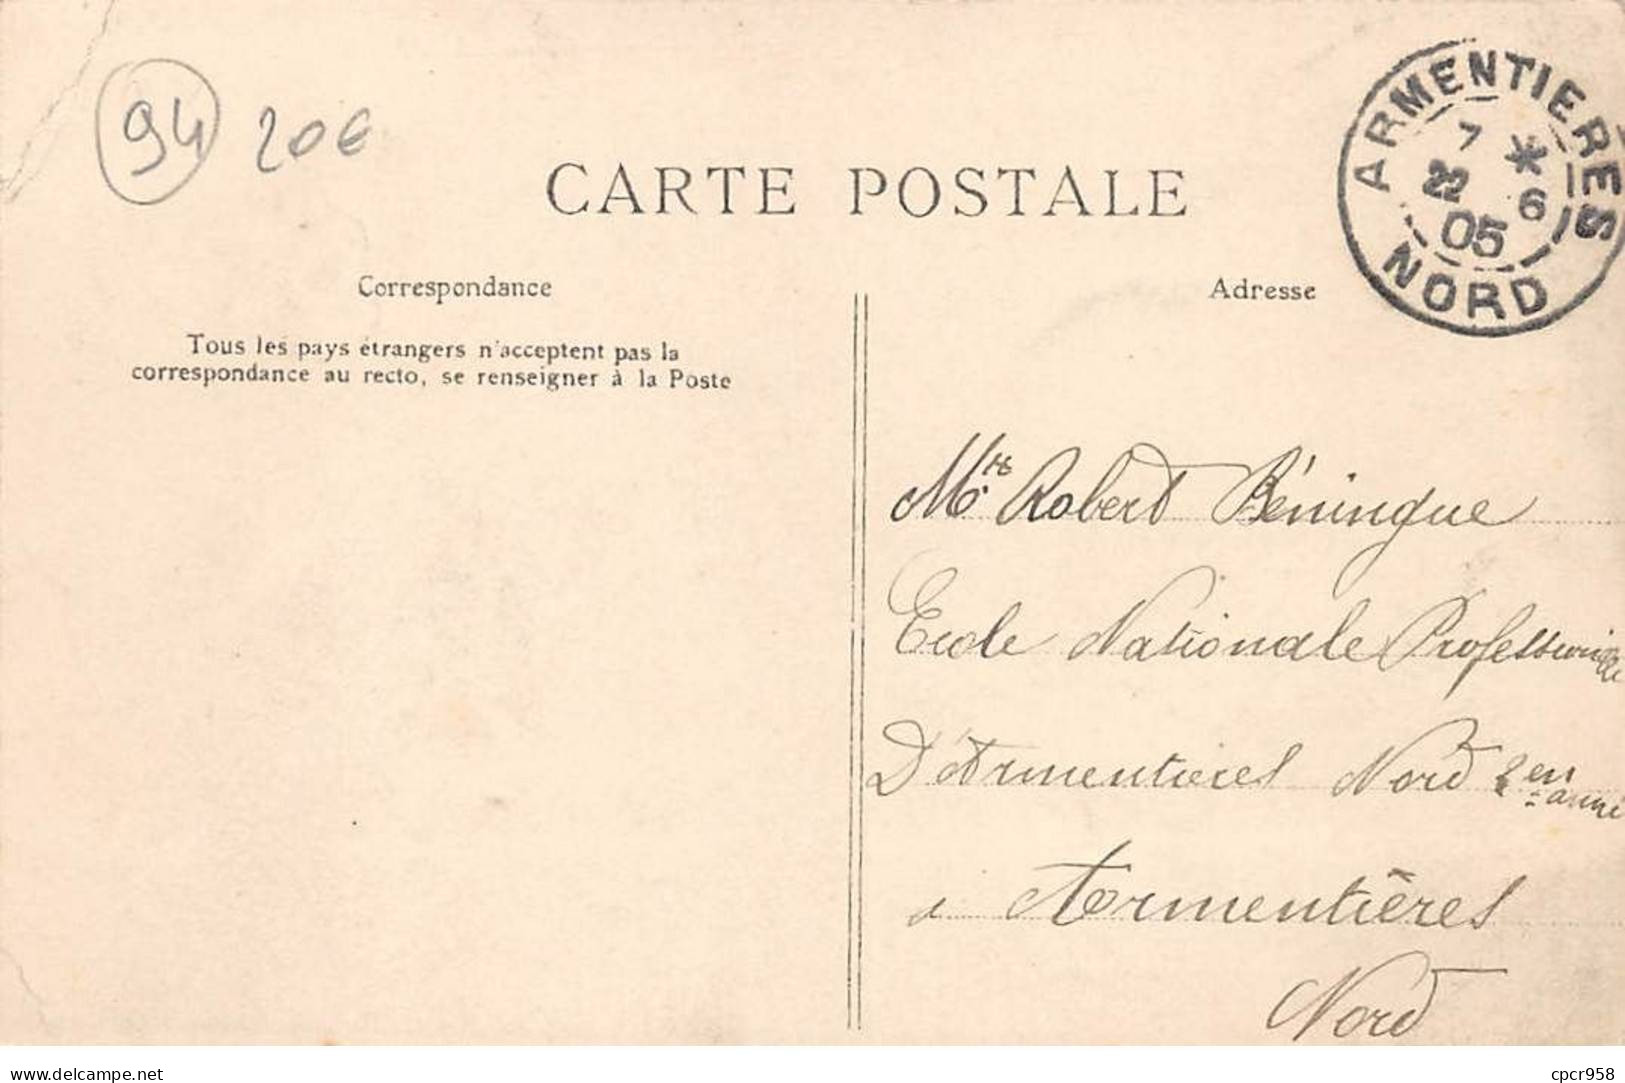 94 20€
CARTE POSTALE
ARMENTIERES
7 *
22 6
05
NORD
Correspondance
Adresse
Tous les pays étrangers n'acceptent pas la
correspondance au recto, se renseigner à la Poste
Mr Robert Béningue
Ecole Nationale Professionnelle
D'Armentieres Nord 2en
anné
à Armentières
Nord
www.delcampe.net
cpcr958